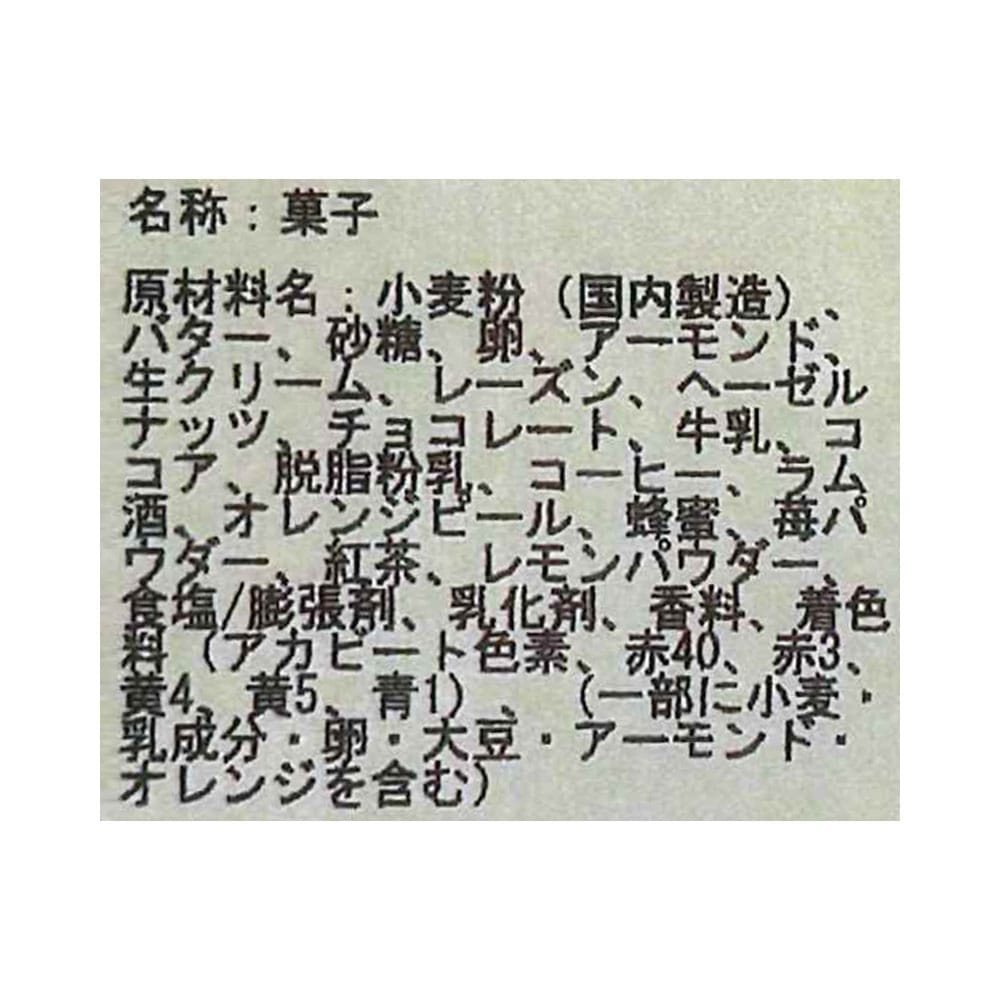 名称：菓子
原材料名：小麦粉（国内製造）、
バター、砂糖、卵、アーモンド、
生クリーム、レーズン、ヘーゼル
ナッツ、チョコレート、牛乳、コ
コア、脱脂粉乳、コーヒー、ラム
酒、オレンジピール、蜂蜜、苺パ
ウダー、紅茶、レモンパウダー、
食塩/膨張剤、乳化剤、香料、着色
料（アカビート色素、赤40、赤3、
黄4、黄5、青1）、（一部に小麦・
乳成分・卵・大豆・アーモンド・
オレンジを含む）